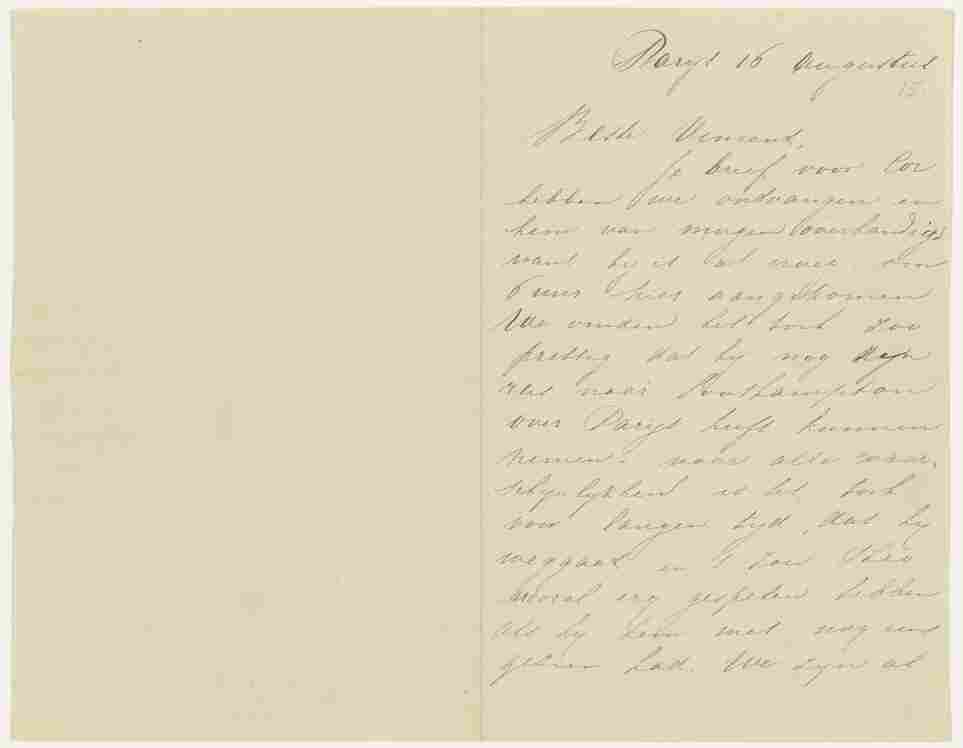 Parijs 16 Augustus
15.
Beste Vincent,
Je brief voor Cor
hebben we ontvangen en
hem van morgen overhandigd
want hij is al vroeg om
6 uur hier aangekomen
We vinden het toch zoo
prettig dat hij nog zijn
reis naar Southampton
over Parijs heeft kunnen
nemen. naar alle waar-
schijnlijkheid is het toch
voor langen tijd, dat hij
weggaat en 't zou Theo
vooral erg gespeten hebben
als hij hem niet nog eens
gezien had. We zijn al